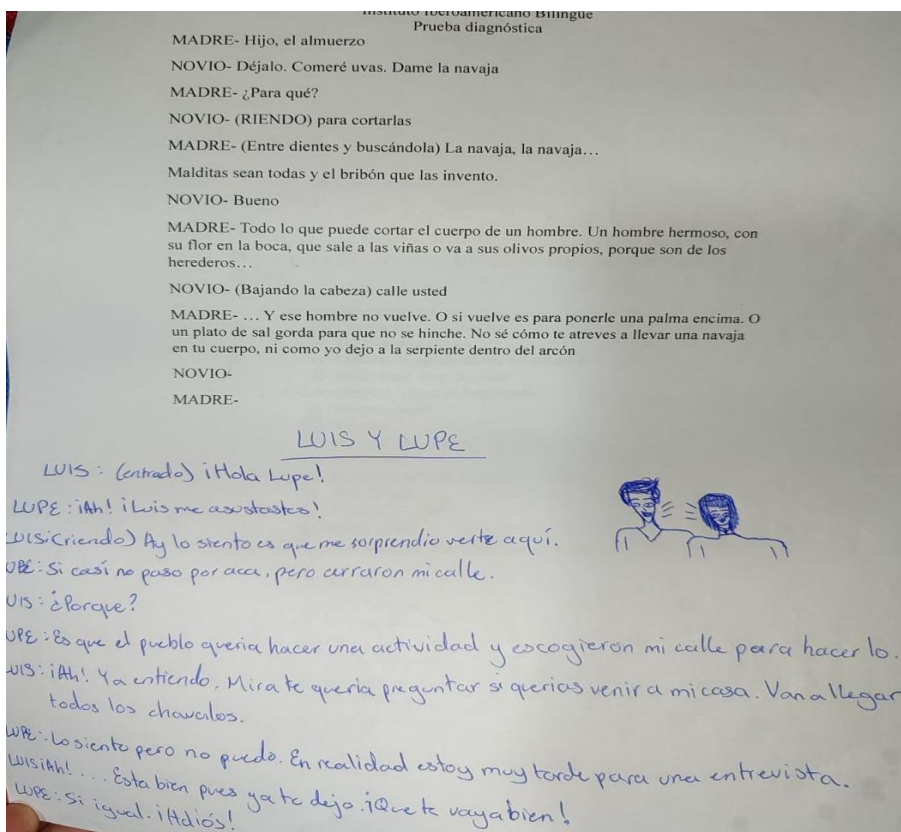 Instituto Iberoamericano Bilingüe
Prueba diagnóstica
MADRE- Hijo, el almuerzo
NOVIO- Déjalo. Comeré uvas. Dame la navaja
MADRE- ¿Para qué?
NOVIO- (RIENDO) para cortarlas
MADRE- (Entre dientes y buscándola) La navaja, la navaja…
Malditas sean todas y el bribón que las invento.
NOVIO- Bueno
MADRE- Todo lo que puede cortar el cuerpo de un hombre. Un hombre hermoso, con
su flor en la boca, que sale a las viñas o va a sus olivos propios, porque son de los
herederos…
NOVIO- (Bajando la cabeza) calle usted
MADRE- … Y ese hombre no vuelve. O si vuelve es para ponerle una palma encima. O
un plato de sal gorda para que no se hinche. No sé cómo te atreves a llevar una navaja
en tu cuerpo, ni como yo dejo a la serpiente dentro del arcón
NOVIO-
MADRE-
LUIS Y LUPE
LUIS: (entrado) ¡Hola Lupe!
LUPE: ¡Ah! ¡Luis me asustastes!
LUIS: (riendo) Ay lo siento es que me sorprendio verte aquí.
UPE: Si casí no paso por aca, pero cerraron mi calle.
UIS: ¿Porque?
UPE: Es que el pueblo queria hacer una actividad y escogieron mi calle para hacerlo.
UIS: ¡Ah! Ya entiendo. Mira te queria preguntar si querias venir a mi casa. Van a llegar
todos los chavalos.
LUPE: Lo siento pero no puedo. En realidad estoy muy tarde para una entrevista.
LUIS: ¡Ah! ... Esta bien pues ya te dejo. ¡Que te vaya bien!
LUPE: Si igual. ¡Adiós!